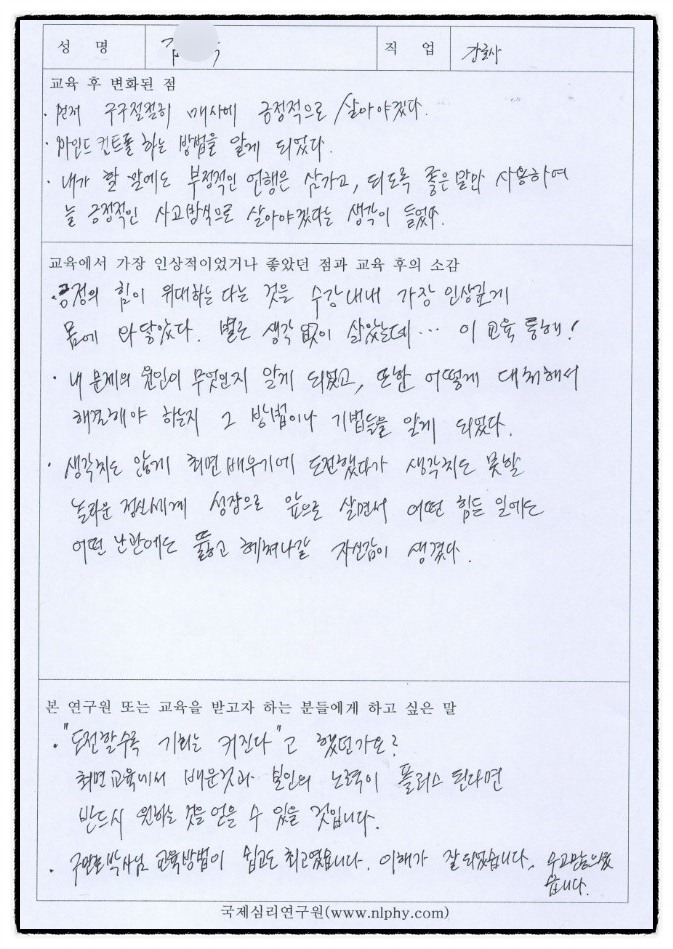 성 명 김 직 업 간호사
교육 후 변화된 점
· 먼저 구구절절히 매사에 긍정적으로 살아야겠다.
· 마인드컨트롤 하는 방법을 알게 되었다.
· 내가 할 말에도 부정적인 언행은 삼가고, 되도록 좋은말만 사용하여
늘 긍정적인 사고방식으로 살아야겠다는 생각이 들었다.
교육에서 가장 인상적이었거나 좋았던 점과 교육 후의 소감
· 긍정의 힘이 위대하는 다는 것을 수강내내 가장 인상깊게
몸에 와 닿았다. 별로 생각없이 살았는데··· 이 교육 통해!
· 내 문제의 원인이 무엇인지 알게 되었고, 또한 어떻게 대처해서
해결해야 하는지 그 방법이나 기법들을 알게 되었다.
· 생각치도 않게 최면배우기에 도전했다가 생각치도 못할
놀라운 정신세계 성장으로 앞으로 살면서 어떤 힘든 일에도
어떤 난관에도 뚫고 헤쳐나갈 자신감이 생겼다.
본 연구원 또는 교육을 받고자 하는 분들에게 하고 싶은 말
· "도전할수록 기회는 커진다"고 했던가요?
최면교육에서 배운것과 본인의 노력이 플러스 된다면
반드시 원하는 것을 얻을 수 있을 것입니다.
· 박사님 교육방법이 쉽고도 최고였습니다. 이해가 잘 되었습니다.
습니다.
국제심리연구원(www.nlphy.com)